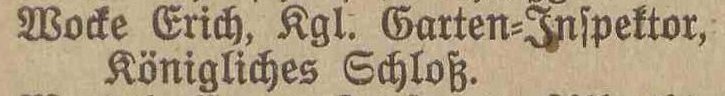 Wocke Erich, Kgl. Garten-Inspektor,
Königliches Schloß.